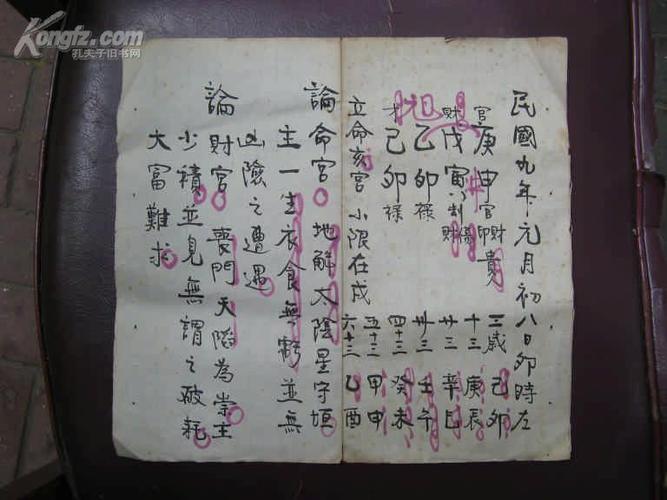 Kongfz.com
孔夫子旧书网
民國九年元月初八日卯時左
官庚申官印財貴
財戊寅
日乙卯祿
才己卯祿
立命亥宮小限在戌
三歲己卯
十三庚辰
廿三辛巳
卅三壬午
四十三癸未
五十三甲申
六十三乙酉
論命宮 地解太陰星守垣
主一生衣食無虧並無
凶險之遭遇
論財宮 喪門天 為崇主
少積並見無謂之破耗
大富難求